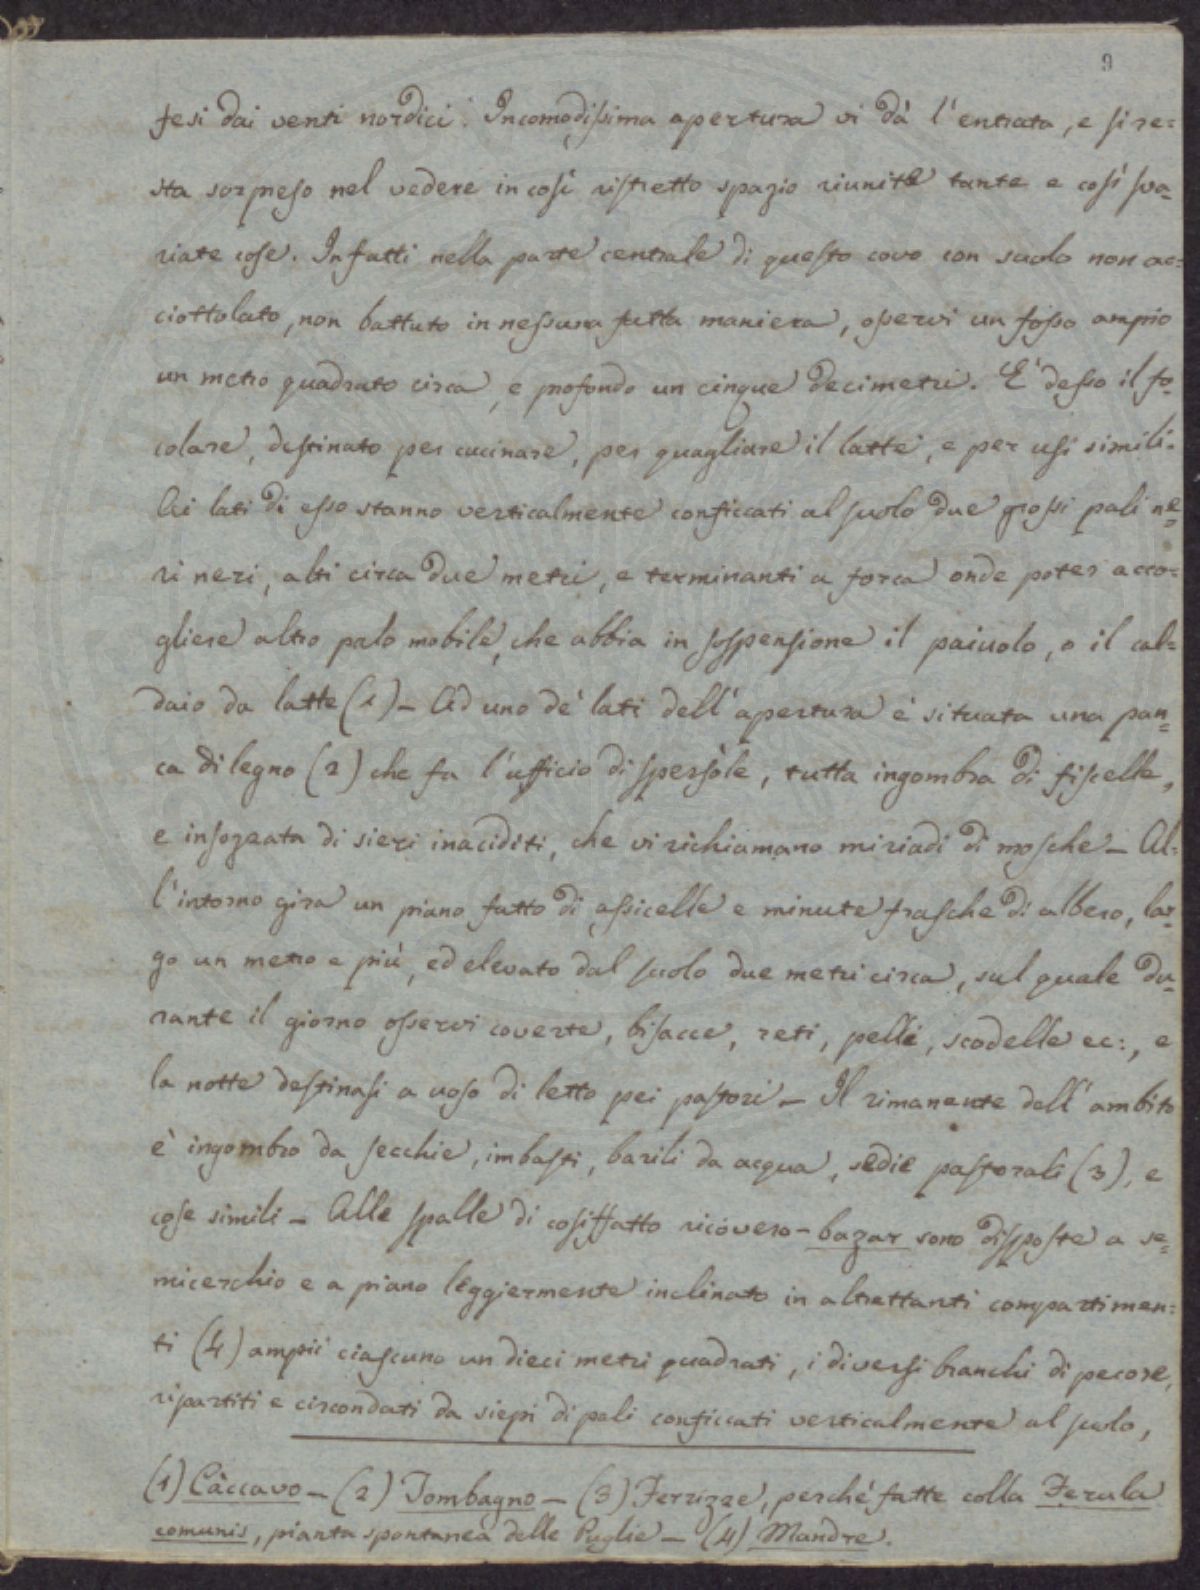 9
fesi dai venti nordici. Incomodissima apertura vi dà l'entrata, e si re=
sta sorpreso nel vedere in così ristretto spazio riunite tante e così sva=
riate cose. Infatti nella parte centrale di questo covo con suolo non ac=
ciottolato, non battuto in nessuna fatta maniera, osservi un fosso ampio
un metro quadrato circa, e profondo un cinque decimetri. E' desso il fo=
colare, destinato per cucinare, per quagliare il latte, e per usi simili.
Ai lati di esso stanno verticalmente conficcati al suolo due grossi pali ne=
ri neri, alti circa due metri, e terminanti a forca onde poter acco=
gliere altro palo mobile, che abbia in sospensione il paiuolo, o il cal=
daio da latte (1) – Ad uno de' lati dell'apertura è situata una pan=
ca di legno (2) che fa l'ufficio di spersòle, tutta ingombra di fiscelle,
e insozzata di sieri inaciditi, che vi richiamano miriadi di mosche – Al=
l'intorno gira un piano fatto di assicelle e minute frasche di albero, lar=
go un metro e più, ed elevato dal suolo due metri circa, sul quale du=
rante il giorno osservi coverte, bisacce, reti, pelli, scodelle ec:, e
la notte destinasi a uoso di letto pei pastori – Il rimanente dell'ambito
è ingombro da secchie, imbasti, barili da acqua, sedie pastorali (3), e
cose simili – Alle spalle di cosiffatto ricovero-bazar sono disposte a se=
micerchio e a piano leggiermente inclinato in altrettanti compartimen=
ti (4) ampii ciascuno un dieci metri quadrati, i diversi branchi di pecore,
ripartiti e circondati da siepi di pali conficcati verticalmente al suolo,
(1) Càccavo – (2) Tombagno – (3) Ferrizze, perchè fatte colla Ferula
comunis, pianta spontanea delle Puglie – (4) Mandre.